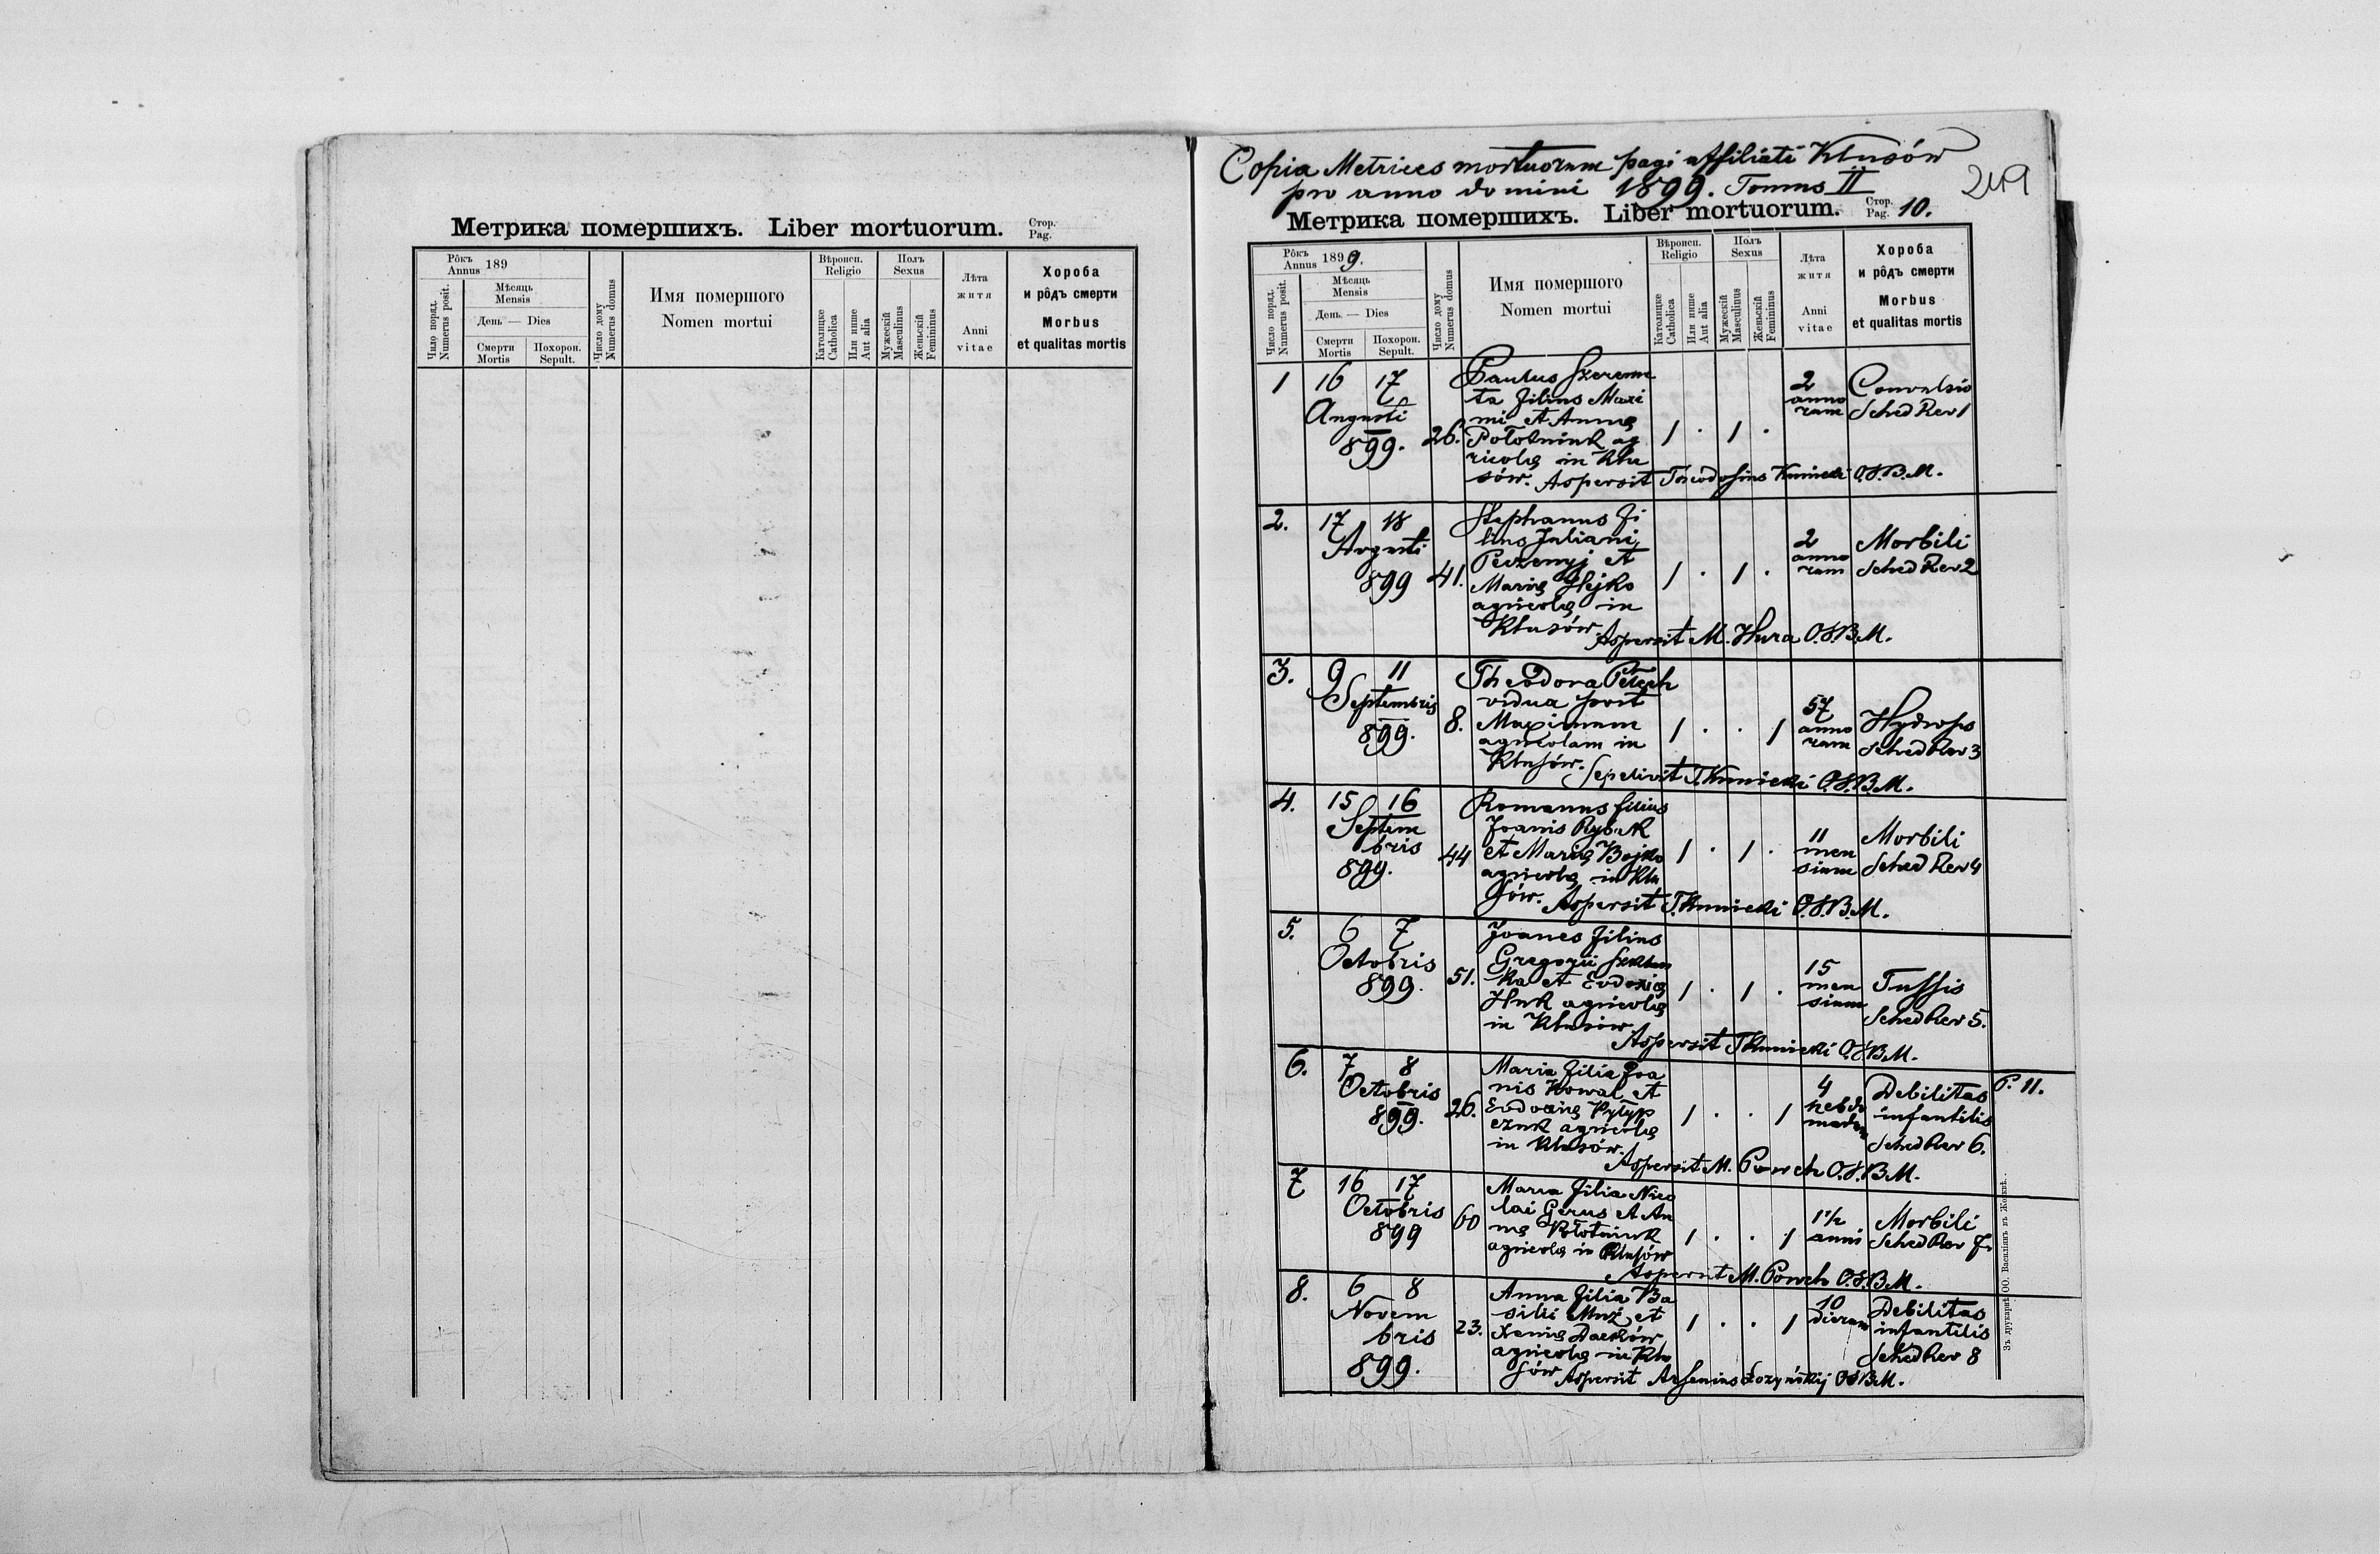 Метрика помершихъ. Liber mortuorum. Стор. Pag.
Рôкъ Annus 189
Мѣсяць Mensis
День — Dies
Число поряд. Numerus posit.
Смерти Mortis
Похорон. Sepult.
Число дому Numerus domus
Имя помершого
Nomen mortui
Вѣроисп. Religio
Католицке Catholica
Или инше Aut alia
Полъ Sexus
Мужескій Masculinus
Женьскій Femininus
Лѣта житя
Anni vitae
Хороба
и рôдъ смерти
Morbus
et qualitas mortis
Copia Metrices mortuorum pagi affiliati Klusów
pro anno domini 1899. Tomus II
249
Метрика помершихъ. Liber mortuorum. Стор. Pag. 10.
Рôкъ Annus 1899.
Мѣсяць Mensis
День — Dies
Число поряд. Numerus posit.
Смерти Mortis
Похорон. Sepult.
Число дому Numerus domus
Имя помершого
Nomen mortui
Вѣроисп. Religio
Католицке Catholica
Или инше Aut alia
Полъ Sexus
Мужескій Masculinus
Женьскій Femininus
Лѣта житя
Anni vitae
Хороба
и рôдъ смерти
Morbus
et qualitas mortis
1 16 17 Augusti 899. 26.
Paulus Szereme
ta filius Maxi
mi et Annę
Połotniuk ag
ricolę in Klu
sów. Aspersit Theodosius Kunicki O.S.B.M.
1 . 1 .
2 anno rum
Convulsio
Sched Rev 1
2. 17 18 Augusti 899 41.
Stephanus fi
lius Juliani
et
Marię Hejko
agricolę in
Klusów. Aspersit M. Hura O.S.B.M.
1 . 1 .
2 anno rum
Morbili
Sched Rev 2
3. 9 11 Septembris 899. 8.
Theodora Petech
vidua post
Maximum
agricolam in
Klusów. Sepelivit T. Kunicki O.S.B.M.
1 . . 1
57 anno rum
Hydrops
Sched Rev 3
4. 15 16 Septem bris 899. 44
Romanus filius
Joanis Rybak
et Marię Bojko
agricolę in Klu
sów. Aspersit T. Kunicki O.S.B.M.
1 . 1 .
11 men sium
Morbili
Sched Rev 4
5. 6 7 Octobris 899. 51.
Joanes filius
Gregorii
ka et Evdoxię
Huk agricolę
in Klusów. Aspersit T Kunicki O.S.B.M.
1 . 1 .
15 men sium
Tussis
Sched Rev 5.
6. 7 8 Octobris 899. 26.
Maria filia Joa
nis Kowal et
Evdoxię Pylyp
czuk agricolę
in Klusów. Aspersit M. Powch O.S.B.M.
1 . . 1
4 hebdo madum
Debilitas
infantilis
Sched Rev 6.
P. 11.
7 16 17 Octobris 899 60
Maria filia Nico
lai Gerus et An
nę Połotniuk
agricolę in Klusów
Aspersit M. Powch O.S.B.M.
1 . . 1
1 1/2 anni
Morbili
Sched Rev 7.
8. 6 8 Novem bris 899. 23.
Anna filia Ba
silii Muż et
Xenię Daćków
agricolę in Klu
sów Aspersit Arsenius Łozyńskij O.S.B.M.
1 . . 1
10 dierum
Debilitas
infantilis
Sched Rev 8
Зъ друкарнѣ ОО. Василіянъ въ Жовквѣ.